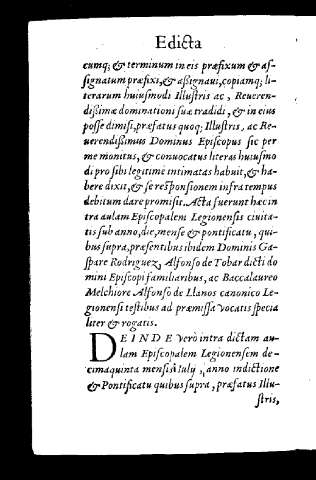 Edicta
cumq; & terminum in eis præfixum & as-
signatum præfixi, & assignaui, copiamq; li-
terarum huiusmodi Illustris ac, Reueren-
dissimæ dominationi suæ tradidi, & in eius
posse dimisi, præfatus quoq; Illustris, ac Re-
uerendissimus Dominus Episcopus sic per
me monitus, & conuocatus literas huiusmo
di pro sibi legitime intimatas habuit, & ha-
bere dixit, & se responsionem infra tempus
debitum dare promisit. Acta fuerunt hæc in
tra aulam Episcopalem Legionensis ciuita-
tis sub anno, die, mense & pontificatu, qui-
bus supra, præsentibus ibidem Dominis Ga-
spare Rodriguez, Alfonso de Tobar dicti do
mini Episcopi familiaribus, ac Baccalaureo
Melchiore Alfonso de Llanos canonico Le-
gionensi testibus ad præmissa vocatis specia
liter & rogatis.
DEINDE Verò intra dictam au-
lam Episcopalem Legionensem de-
cimaquinta mensis Iulij, anno indictione
& Pontificatu quibus supra, præfatus Illu-
stris,